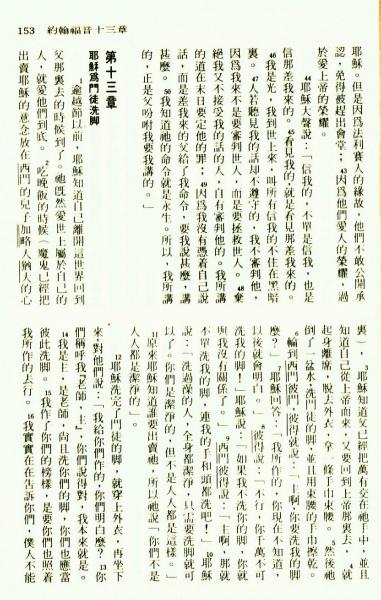 153 約翰福音十三章
耶穌。但是因爲法利賽人的緣故，他們不敢公開承
認，免得被趕出會堂；43因爲他們愛人的榮耀，過
於愛上帝的榮耀。
44耶穌大聲說：「信我的，不單是信我，也是
信那差我來的。45看見我的，就是看見那差我來的。
46我是光，我到世上來，叫所有信我的不住在黑暗
裏。47人若聽見我的話却不遵守的，我不審判他，
因爲我來不是要審判世人，而是要拯救世人。48棄
絕我又不接受我的話的人，自有審判他的。我所講
的道在末日要定他的罪；49因爲我沒有憑着自己說
話，而是差我來的父給了我命令，要我說甚麽，講
甚麽。50我知道祂的命令就是永生。所以，我所講
的，正是父吩咐我要我講的。」
第十三章
耶穌爲門徒洗脚
1逾越節以前，耶穌知道自己離開這世界回到
父那裏去的時候到了。祂旣然愛世上屬於自己的
人，就愛他們到底。2吃晚飯的時候（魔鬼已經把
出賣耶穌的意念放在西門的兒子加略人猶大的心
裏），3耶穌知道父已經把萬有交在祂手中，並且
知道自己從上帝而來，又要回到上帝那裏去，4就
起身離席，脫去外衣，拿一條手巾束腰。5然後祂
倒了一盆水，洗門徒的脚，並且用束腰的手巾擦乾。
6輪到西門彼得，彼得就說：「主啊，你要洗我的脚
麽？」7耶穌回答：「我所作的，你現在不知道，
以後就會明白。」8彼得說：「不行，你千萬不可
洗我的脚！」耶穌說：「如果我不洗你的脚，你就
與我沒有關係了。」9西門彼得說：「主啊，那就
不單洗我的脚，連我的手和頭都洗吧！」10耶穌
說：「洗過澡的人，全身都潔淨，只需要洗脚就可
以了。你們是潔淨的，但不是人人都是這樣。」
11原來耶穌知道誰要出賣祂，所以祂說「你們不是
人人都是潔淨的」。
12耶穌洗完了門徒的脚，就穿上外衣，再坐下
來，對他們說：「我給你們作的，你們明白麽？13你
們稱呼我『老師，主』，你們說得對，我本來就是。
14我是主，是老師，尚且洗你們的脚，你們也應當
彼此洗脚。15我作了你們的榜樣，是要你們也照着
我所作的去行。16我實實在在告訴你們，僕人不能